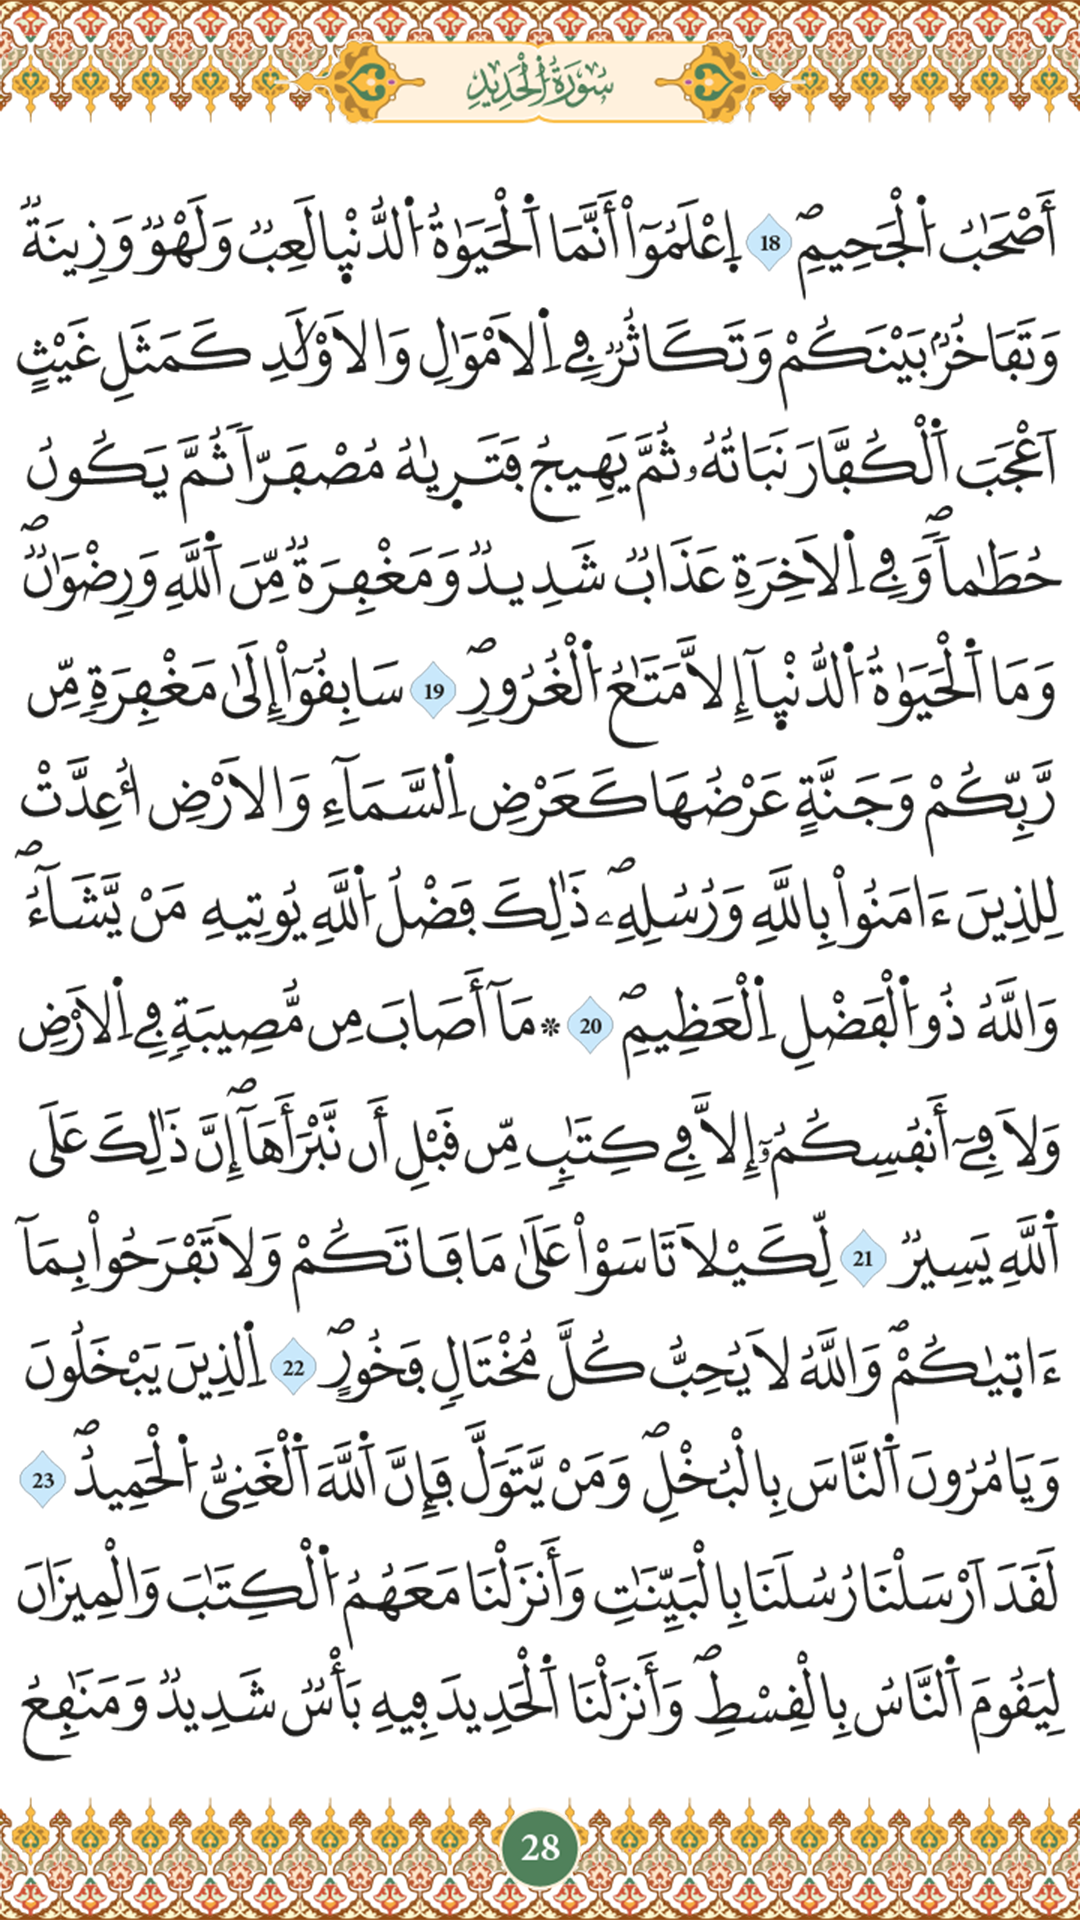 سُورَةُ الْحَدِيدِ
أَصْحَٰبُ اُ۬لْجَحِيمِۖ 18 اِ۪عْلَمُوٓاْ أَنَّمَا اَ۬لْحَيَوٰةُ اُ۬لدُّنْي۪ا لَعِبٞ وَلَهْوٞ وَزِينَةٞ
وَتَفَاخُرُۢ بَيْنَكُمْ وَتَكَاثُرٞ فِے اِ۬لَامْوَٰلِ وَالَاوْلَٰدِ كَمَثَلِ غَيْثٍ
اَعْجَبَ اَ۬لْكُفَّارَ نَبَاتُهُۥ ثُمَّ يَهِيجُ فَتَر۪يٰهُ مُصْفَرّاٗ ثُمَّ يَكُونُ
حُطَٰماٗۖ وَفِے اِ۬لَاخِرَةِ عَذَابٞ شَدِيدٞ وَمَغْفِرَةٞ مِّنَ اَ۬للَّهِ وَرِضْوَٰنٞۖ
وَمَا اَ۬لْحَيَوٰةُ اُ۬لدُّنْي۪آ إِلَّا مَتَٰعُ اُ۬لْغُرُورِۖ 19 سَابِقُوٓاْ إِلَىٰ مَغْفِرَةٖ مِّن
رَّبِّكُمْ وَجَنَّةٍ عَرْضُهَا كَعَرْضِ اِ۬لسَّمَآءِ وَالَارْضِ أُعِدَّتْ
لِلذِينَ ءَامَنُواْ بِاللَّهِ وَرُسُلِهِۦۖ ذَٰلِكَ فَضْلُ اُ۬للَّهِ يُوتِيهِ مَنْ يَّشَآءُۖ
وَاللَّهُ ذُو اُ۬لْفَضْلِ اِ۬لْعَظِيمِۖ 20 * مَآ أَصَابَ مِن مُّصِيبَةٖ فِے اِ۬لَارْضِ
وَلَا فِےٓ أَنفُسِكُمُۥٓ إِلَّا فِے كِتَٰبٖ مِّن قَبْلِ أَن نَّبْرَأَهَآۖ إِنَّ ذَٰلِكَ عَلَى
اَ۬للَّهِ يَسِيرٞ 21 لِّكَيْلَا تَاسَوْاْ عَلَىٰ مَا فَاتَكُمْ وَلَا تَفْرَحُواْ بِمَآ
ءَات۪يٰكُمْۖ وَاللَّهُ لَا يُحِبُّ كُلَّ مُخْتَالٖ فَخُورٍۖ 22 اِ۬لذِينَ يَبْخَلُونَ
وَيَامُرُونَ اَ۬لنَّاسَ بِالْبُخْلِۖ وَمَنْ يَّتَوَلَّ فَإِنَّ اَ۬للَّهَ اَ۬لْغَنِيُّ اُ۬لْحَمِيدُۖ 23
لَقَدَ اَرْسَلْنَا رُسُلَنَا بِالْبَيِّنَٰتِ وَأَنزَلْنَا مَعَهُمُ اُ۬لْكِتَٰبَ وَالْمِيزَانَ
لِيَقُومَ اَ۬لنَّاسُ بِالْقِسْطِۖ وَأَنزَلْنَا اَ۬لْحَدِيدَ فِيهِ بَأْسٞ شَدِيدٞ وَمَنَٰفِعُ
28